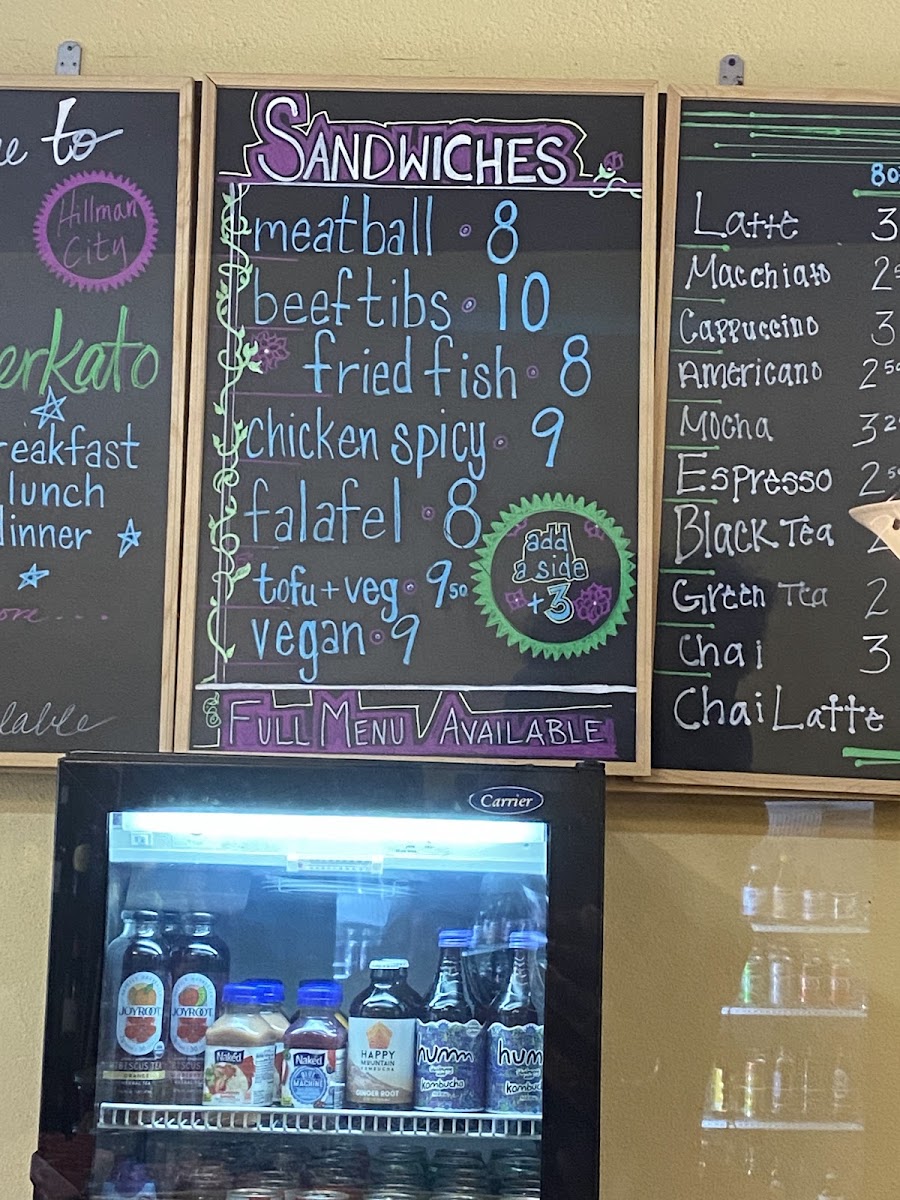 to
Hillman
City
erkato
reakfast
lunch
dinner
lable
SANDWICHES
meatball • 8
beef tibs • 10
fried fish • 8
chicken spicy • 9
falafel • 8
tofu + veg • 9 50
vegan • 9
add
a side
+3
FULL MENU AVAILABLE
80
Latte 3
Macchiato 2
Cappuccino 3
Americano 2 50
Mocha 3 2
Espresso 2 50
Black Tea 2
Green Tea 2
Chai 3
Chai Latte
Carrier
JOYROOT
JOYROOT
HIBISCUS TEA
Naked
Naked
BLUE
MACHINE
HAPPY
MOUNTAIN
KOMBUCHA
GINGER ROOT
humm
kombucha
hum
kombuc